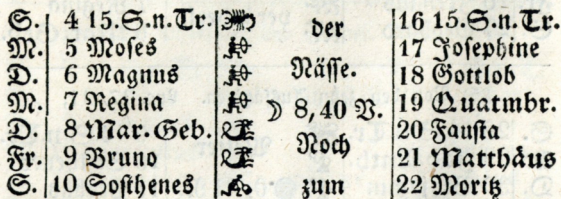 S. 4 15.S.n.Tr. der 16 15.S.n.Tr.
M. 5 Moses 17 Josephine
D. 6 Magnus Nässe. 18 Gottlob
M. 7 Regina ☽ 8,40 V. 19 Quatmbr.
D. 8 Mar.Geb. Noch 20 Fausta
Fr. 9 Bruno 21 Matthäus
S. 10 Sosthenes zum 22 Moritz